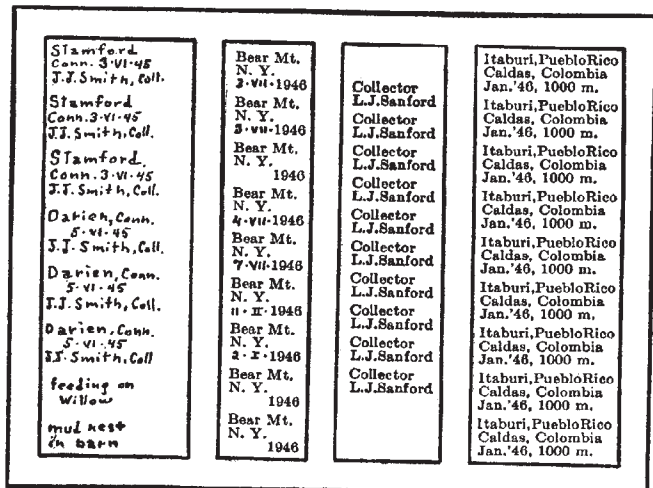 Stamford
Conn. 3-VI-45
J.J. Smith, Coll.
Stamford
Conn. 3-VI-45
J.J. Smith, Coll.
Stamford.
Conn. 3-VI-45
J.J. Smith, Coll.
Darien, Conn.
5-VI-45
J.J. Smith, Coll.
Darien, Conn.
5-VI-45
J.J. Smith, Coll.
Darien, Conn.
5-VI-45
J.J. Smith, Coll
feeding on
Willow
mud nest
in barn
Bear Mt.
N. Y.
3-VII-1946
Bear Mt.
N. Y.
3-VII-1946
Bear Mt.
N. Y.
1946
Bear Mt.
N. Y.
4-VII-1946
Bear Mt.
N. Y.
7-VII-1946
Bear Mt.
N. Y.
11-IX-1946
Bear Mt.
N. Y.
2-X-1946
Bear Mt.
N. Y.
1946
Bear Mt.
N. Y.
1946
Collector
L.J.Sanford
Collector
L.J.Sanford
Collector
L.J.Sanford
Collector
L.J.Sanford
Collector
L.J.Sanford
Collector
L.J.Sanford
Collector
L.J.Sanford
Collector
L.J.Sanford
Collector
L.J.Sanford
Collector
L.J.Sanford
Itaburi,PuebloRico
Caldas, Colombia
Jan.'46, 1000 m.
Itaburi,PuebloRico
Caldas, Colombia
Jan.'46, 1000 m.
Itaburi,PuebloRico
Caldas, Colombia
Jan.'46, 1000 m.
Itaburi,PuebloRico
Caldas, Colombia
Jan.'46, 1000 m.
Itaburi,PuebloRico
Caldas, Colombia
Jan.'46, 1000 m.
Itaburi,PuebloRico
Caldas, Colombia
Jan.'46, 1000 m.
Itaburi,PuebloRico
Caldas, Colombia
Jan.'46, 1000 m.
Itaburi,PuebloRico
Caldas, Colombia
Jan.'46, 1000 m.
Itaburi,PuebloRico
Caldas, Colombia
Jan.'46, 1000 m.